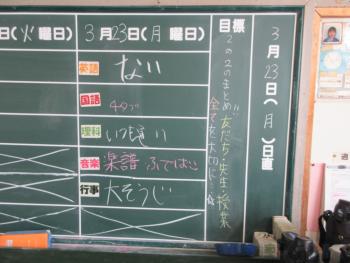 日(火曜日)
3月23日(月曜日)
英語 ない
国語
理科 いつも通り
音楽 楽譜 ふでばこ
行事 大そうじ
目標
2の2のまとめ!!
友だち・先生・授業
全て大切に
3月23日(月)日直